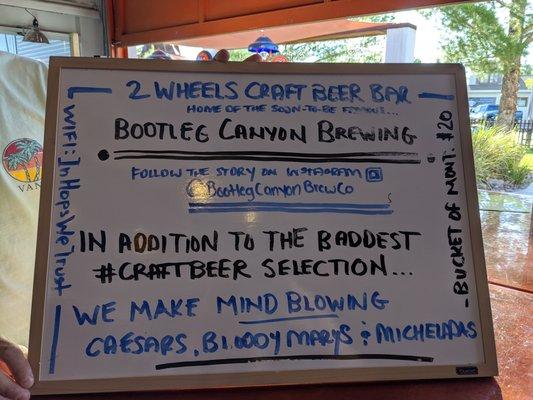 2 WHEELS CRAFT BEER BAR
HOME OF THE SOON-TO-BE FAMOUS...
BOOTLEG CANYON BREWING
FOLLOW THE STORY ON INSTAGRAM
@BootlegCanyonBrewCo
IN ADDITION TO THE BADDEST
#CRAFTBEER SELECTION...
WE MAKE MIND BLOWING
CAESARS, BLOODY MARYS & MICHELADAS
WIFI: InHopsWeTrust
-BUCKET OF MONT: $20
VAN